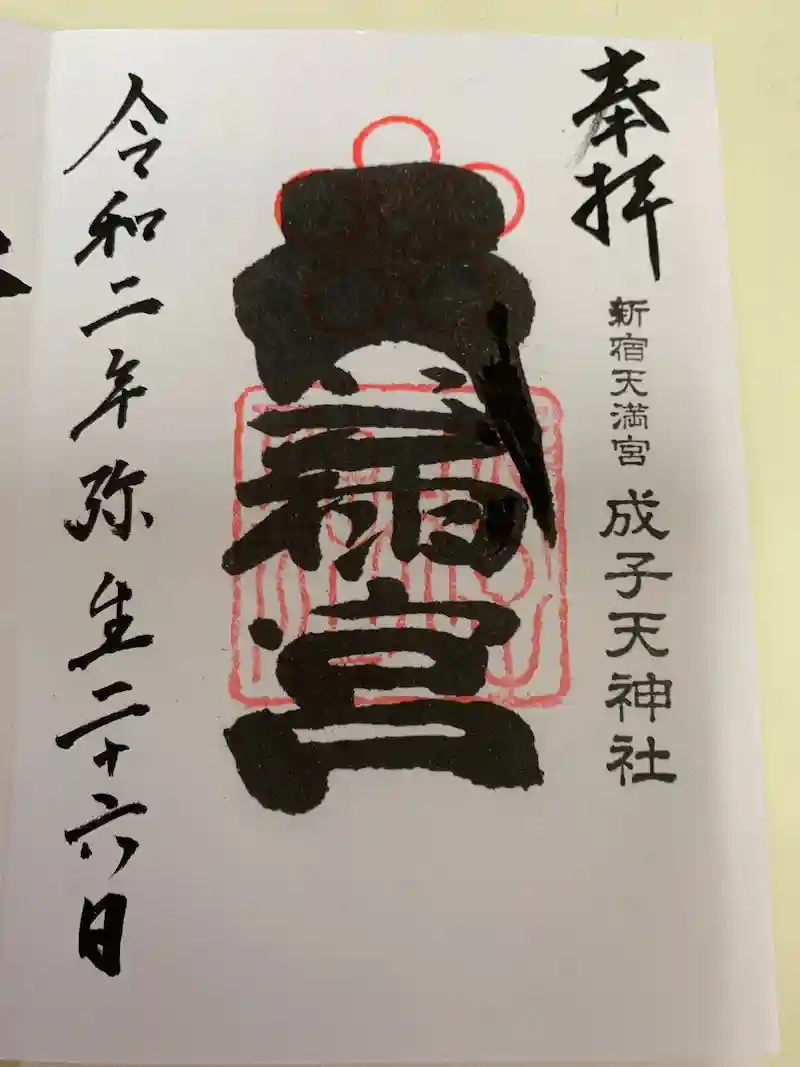 奉拝
新宿天満宮 成子天神社
天満宮
令和二年弥生二十六日